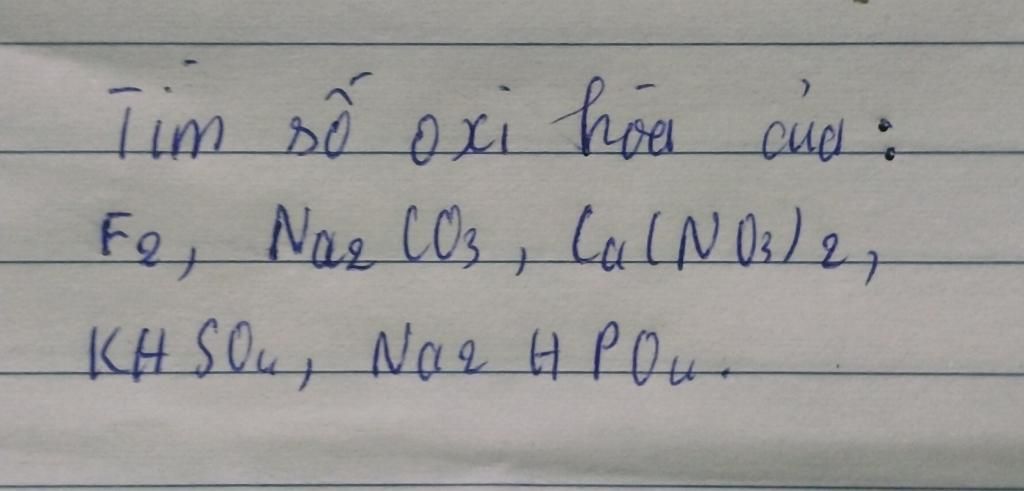 Tìm số oxi hóa của:
F2, Na2CO3, Ca(NO3)2,
KHSO4, Na2HPO4.